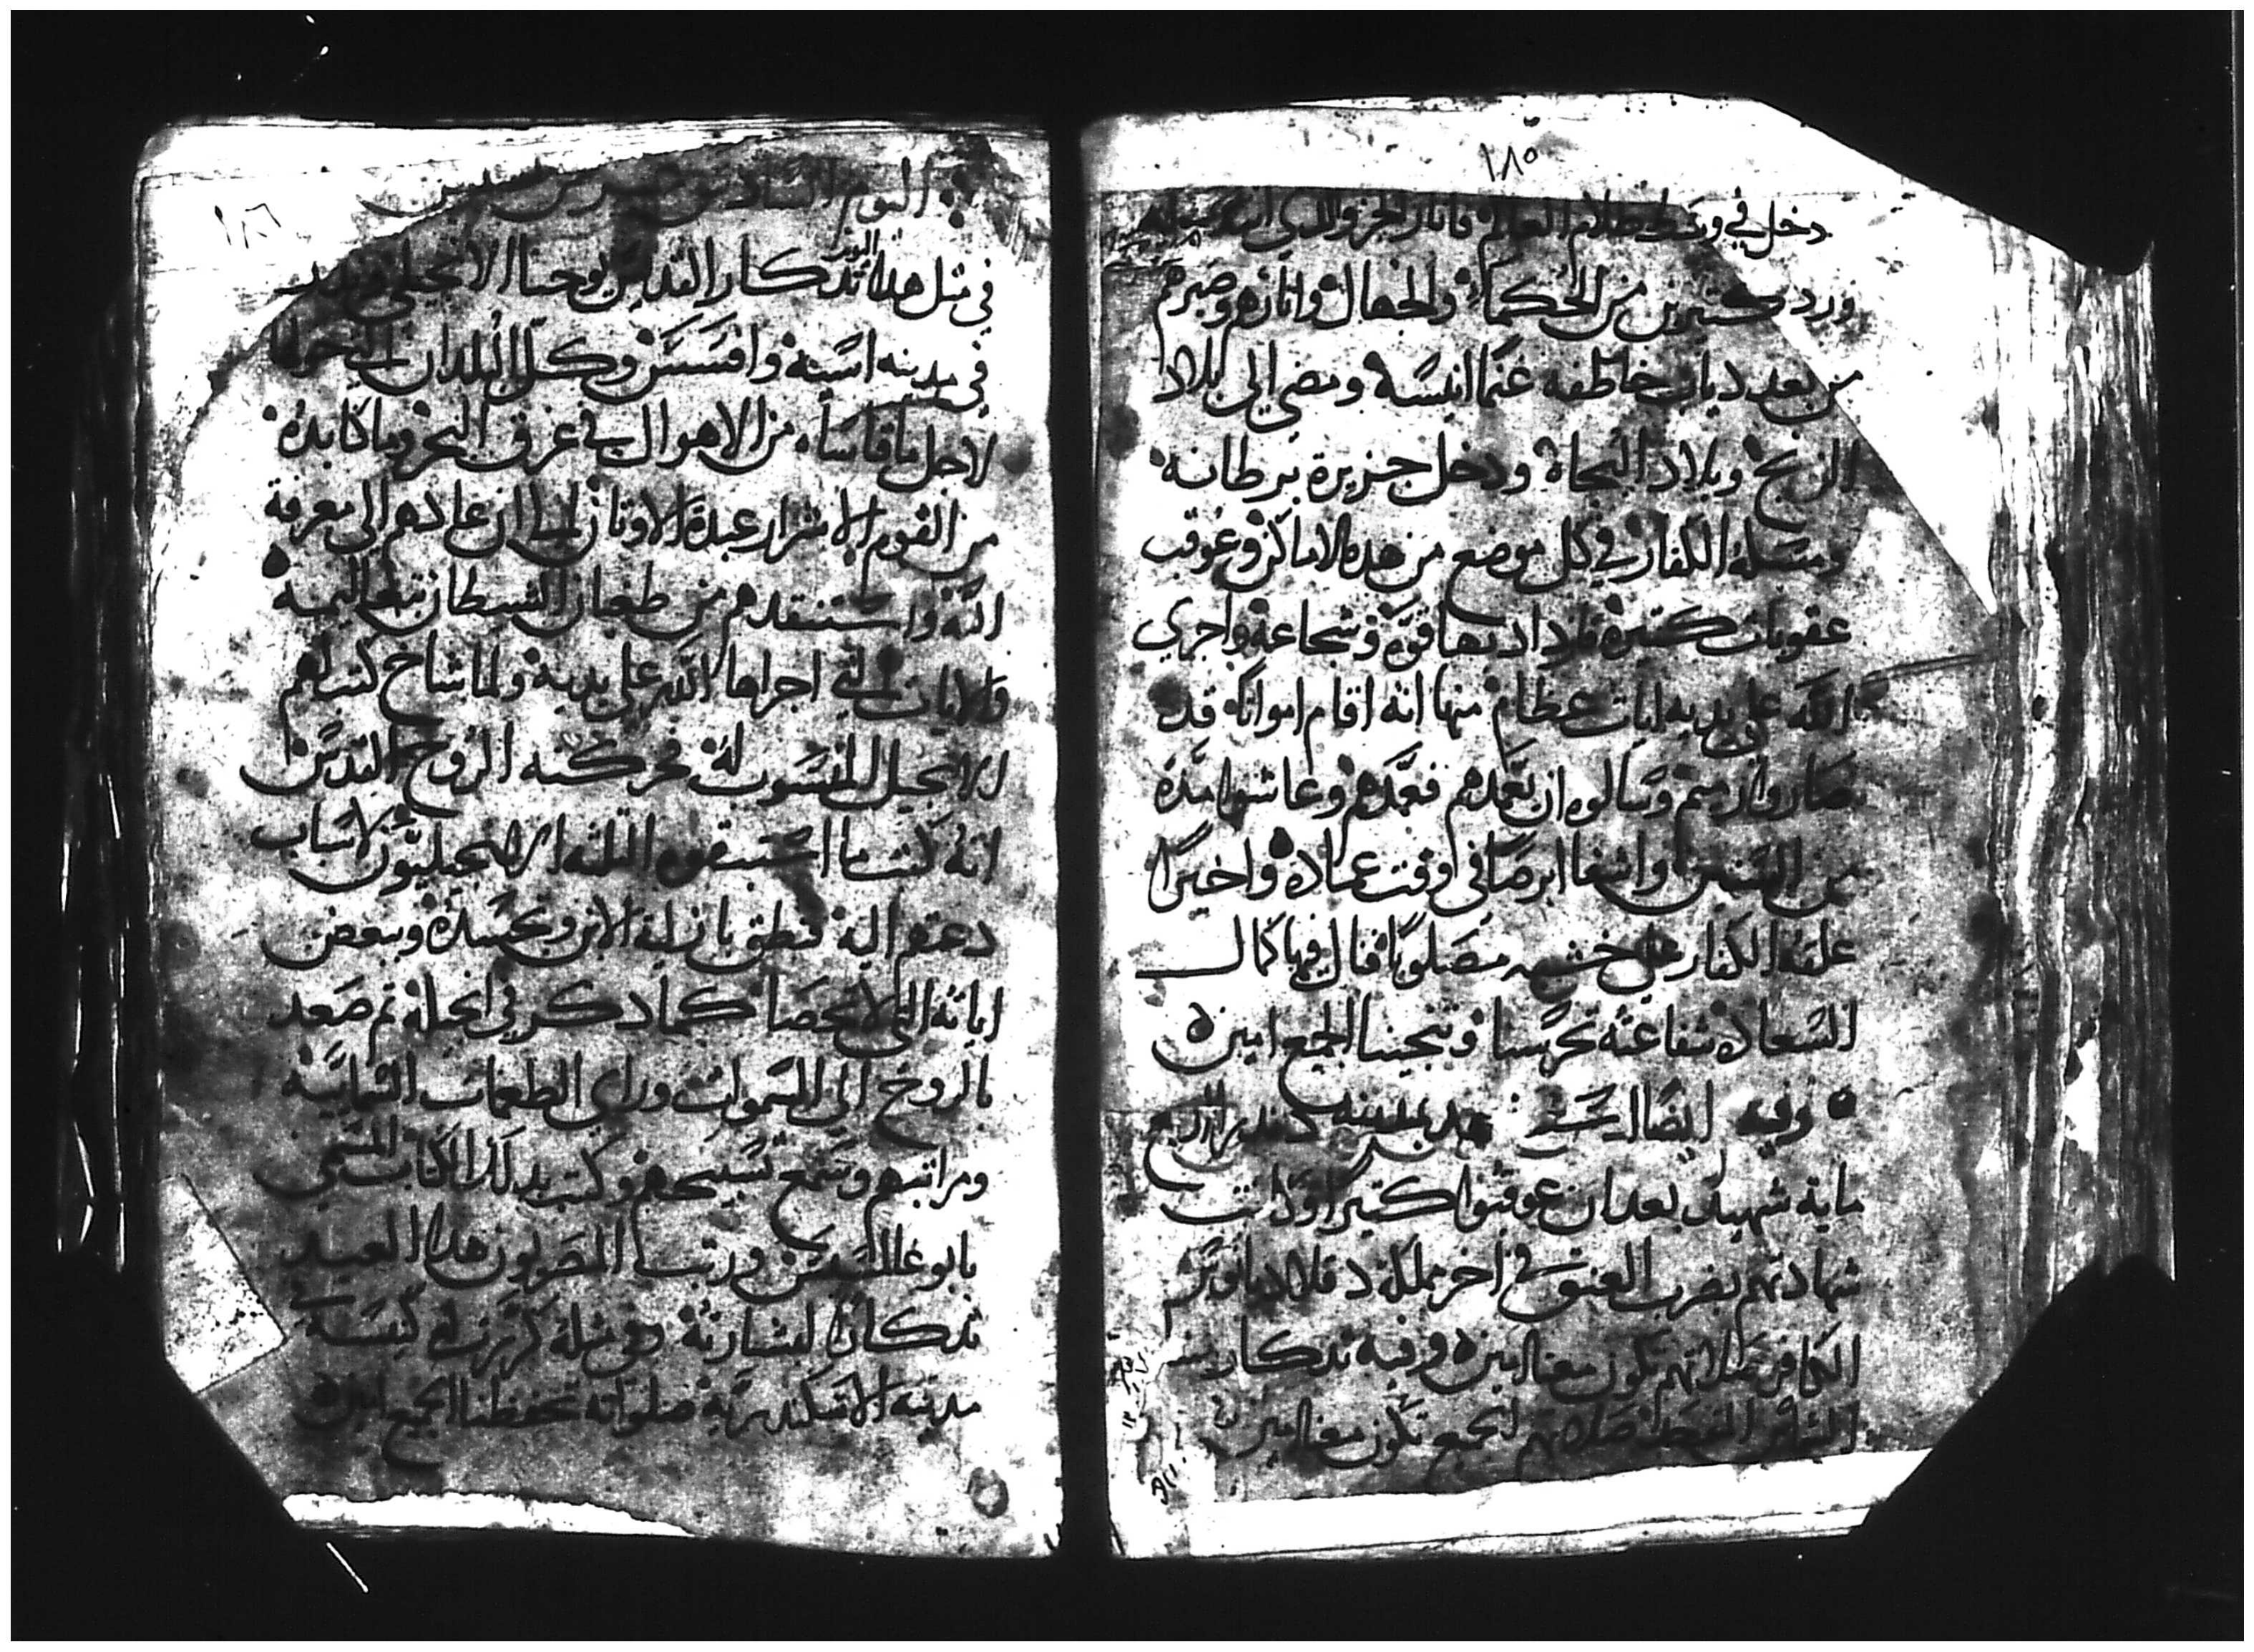 ١٨٥
دخل في وسط ظلام العالم فانار
ورد كتيرين من الحكماء والجهال وانارهم وصيرهم
من بعد دياب خاطفه غنما انيسة ومضي الى بلاد
الزنج وبلاد البجاة ودخل جزيرة برطانيه
ومسكه الكفار في كل موضع من هده الاماكن وعوقب
عقوبات كتيرة فازداد بها قوة وشجاعة واجري
الله على يديه ايات عظام منها انه اقام امواتا قد
صاروا رميم وسالوه ان يعمدهم فعمدهم وعاشوا مدة
من السنين واشفا ابرصا في اوقت عماده واخيرا
علقه الكفار على خشبه مصلوبا فنال فيها كمال
السعاده شفاعته تحرسنا وتنجينا الجميع امين
وفيه ايضا اربع
ماية شهيد بعد ان عوقبوا كتيرا وكانت
شهادتهم بضرب العنق في اخر مملكة دقلاديانوس
الكافر صلاتهم تكون معنا امين وفيه تدكار
صلاتهم الجميع تكون معنا امين
١٨٦
اليوم السادس
في متل هدا اليوم تدكار القديس يوحنا الانجيلي
في مدينه اسية وافسس وكل البلدان التي حولها
لاجل ما قاساه من الاهوال في غرق البحر وما كابده
من القوم الاشرار عبدة الاوتان الى ان عادهم الى معرفة
الله واستنقدهم من طغيان الشيطان
والايات التي اجراها الله على يديه ولما شاخ كتب لهم
الانجيل المنسوب له بحركته الروح القدس
انه كتب ما استبقوه التلته الانجيليون لاسباب
دعتهم اليه فنطق بازلية الابن وتجسده وببعض
اياته التي لا تحصا كما دكر في انجيله تم صعد
بالروح الى السموات وراي الطغمات السمايية
ومراتبهم وسمع تسبيحهم وكتب بدلك الكتاب المسمي
بابوغالمسيس ورتب المصريون هدا العيد
تدكار لبشارته وفي متله كرزت كنيسته في
مدينة الاسكندرية صلواته تحفظنا الجميع امين